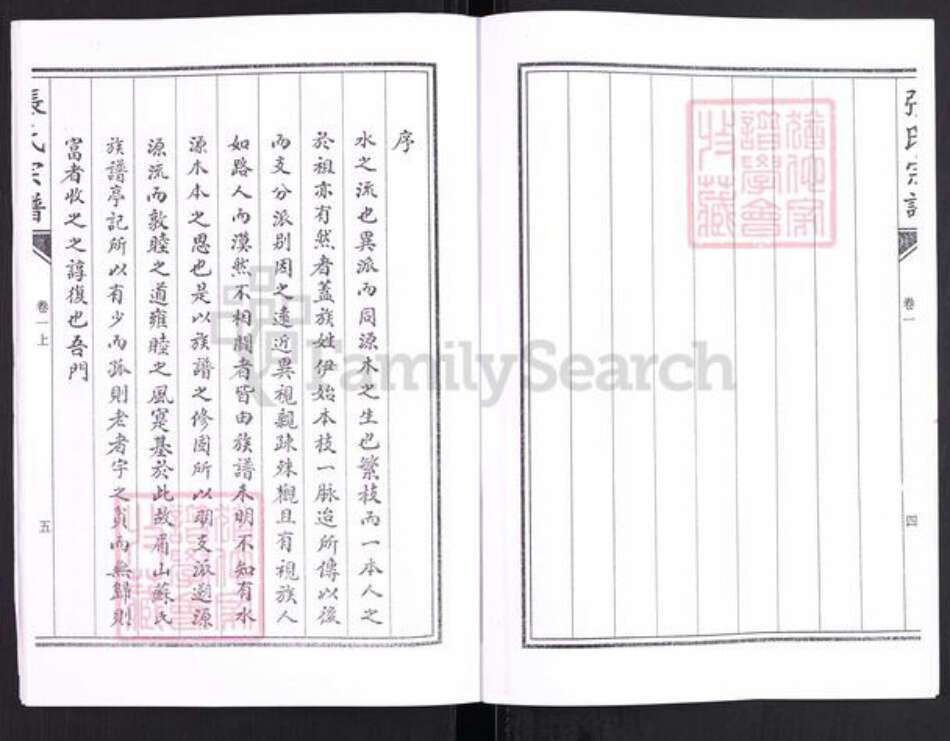 張氏宗譜
卷一
四
序
水之流也異派而同源木之生也繁枝而一本人之
於祖亦有然者蓋族姓伊始本枝一脉迨所傳以後
而支分派别因之遠近異視親疎殊觀且有視族人
如路人而漠然不相關者皆由族譜未明不知有水
源木本之思也是以族譜之修固所以明支派遡源
源流而敦睦之道雍睦之風寔基於此故眉山蘇氏
族譜亭記所以有少而孤則老者字之貧而無歸則
富者收之之諄復也吾門
張氏宗譜
卷一上
五
FamilySearch